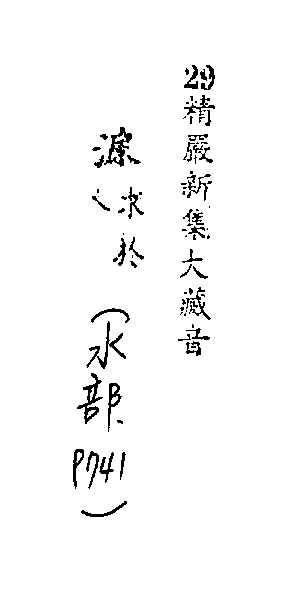 29精嚴新集大藏音
求於
(水部、P741)